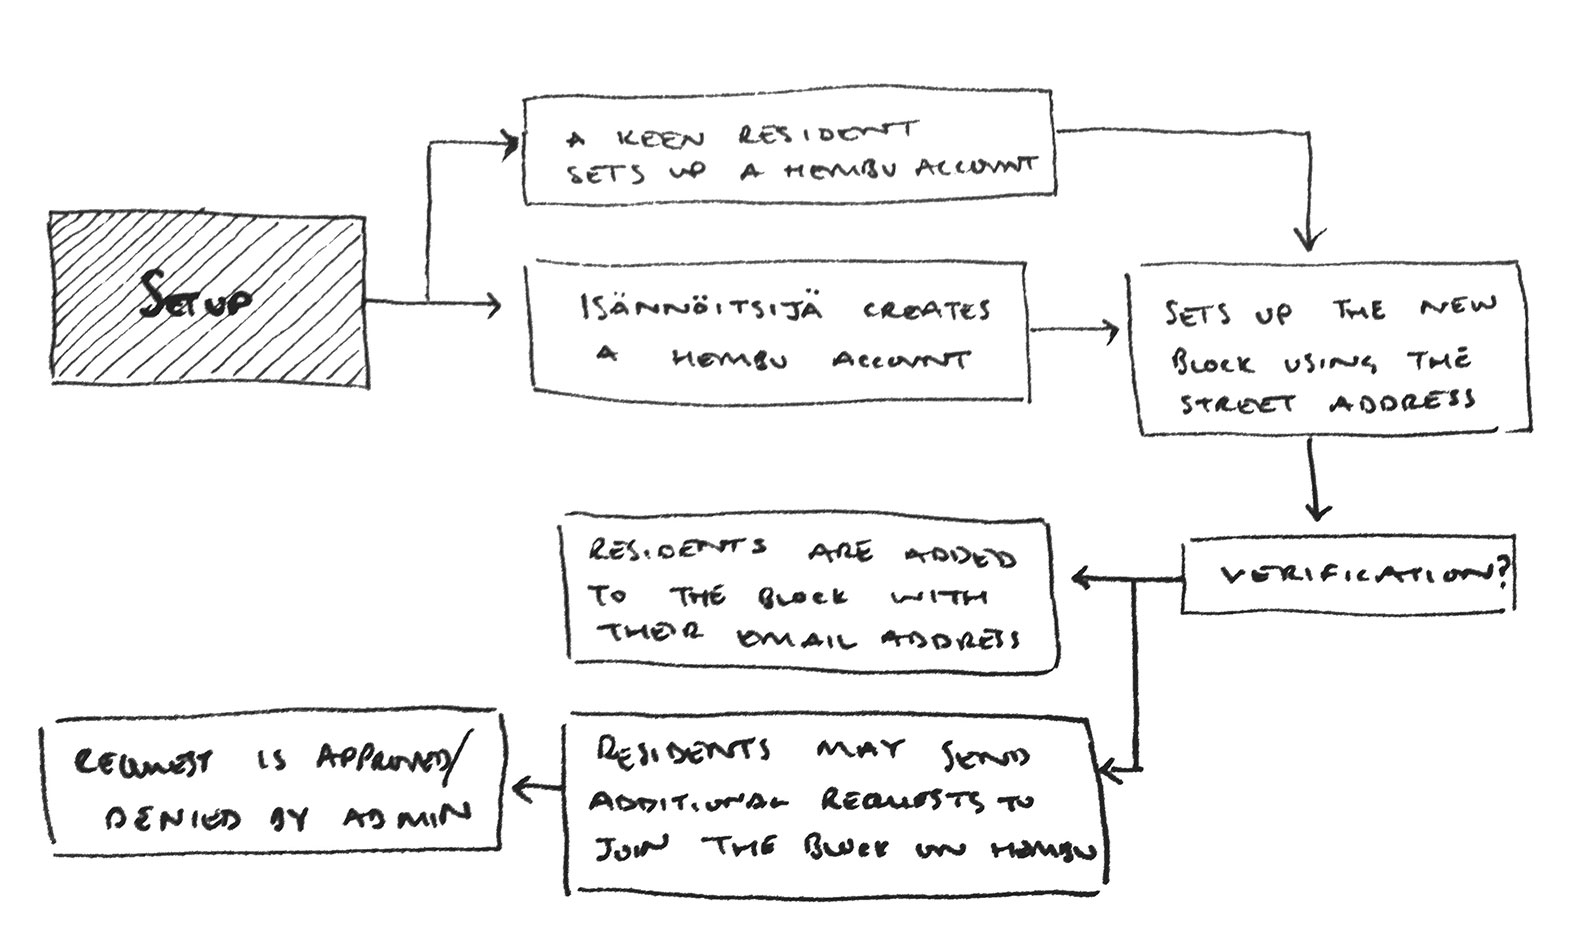 SETUP
A KEEN RESIDENT
SETS UP A HEMBU ACCOUNT
ISÄNNÖITSIJÄ CREATES
A HEMBU ACCOUNT
SETS UP THE NEW
BLOCK USING THE
STREET ADDRESS
VERIFICATION?
RESIDENTS ARE ADDED
TO THE BLOCK WITH
THEIR EMAIL ADDRESS
RESIDENTS MAY SEND
ADDITIONAL REQUESTS TO
JOIN THE BLOCK ON HEMBU
REQUEST IS APPROVED/
DENIED BY ADMIN